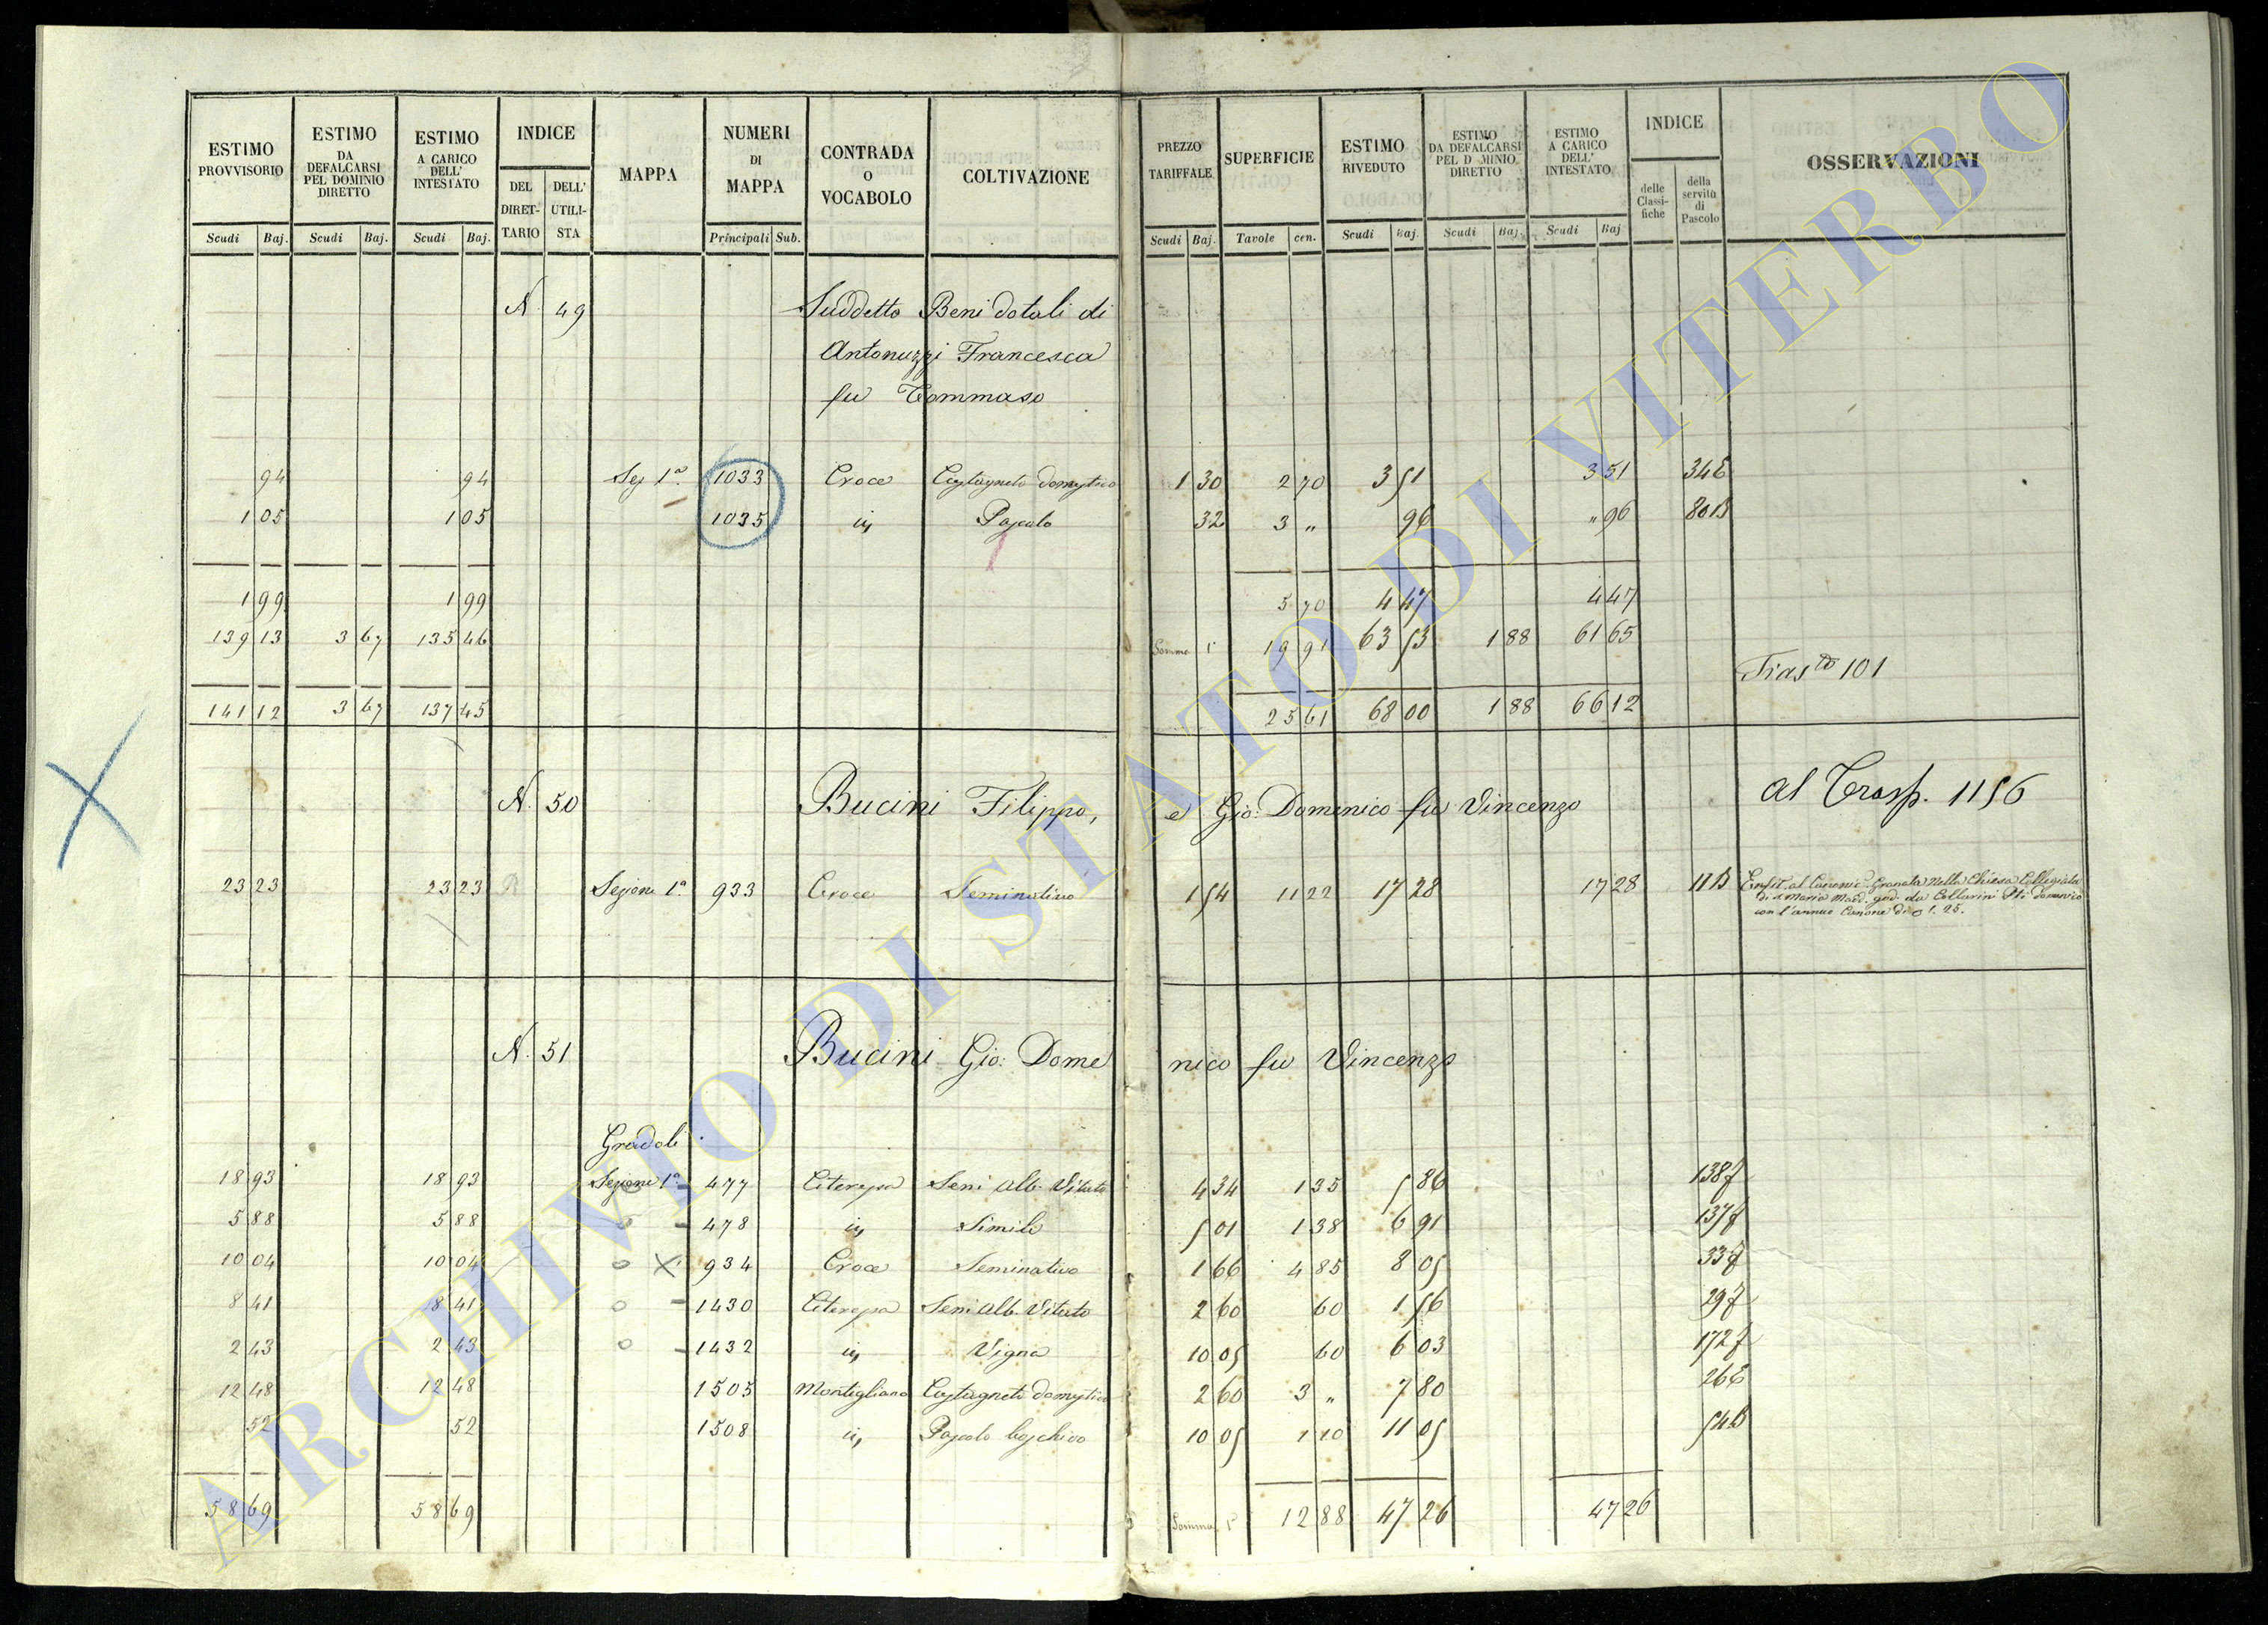 ESTIMO PROVVISORIO Scudi Baj. | ESTIMO DA DEFALCARSI PEL DOMINIO DIRETTO Scudi Baj. | ESTIMO A CARICO DELL' INTESTATO Scudi Baj. | INDICE DEL DIRET-TARIO DELL' UTILI-STA | MAPPA | NUMERI DI MAPPA Principali Sub. | CONTRADA O VOCABOLO | COLTIVAZIONE | PREZZO TARIFFALE Scudi Baj. | SUPERFICIE Tavole cen. | ESTIMO RIVEDUTO Scudi Baj. | ESTIMO DA DEFALCARSI PEL D MINIO DIRETTO Scudi Baj. | ESTIMO A CARICO DELL' INTESTATO Scudi Baj | INDICE delle Classi-fiche della servitù di Pascolo | OSSERVAZIONI
N. 49 Suddetto Beni dotali di
Antonuzzi Francesca
fu Tommaso
94 94 Sez 1ª 1033 Croce Castagneto domestico 1 30 2 70 3 51 3 51 34 E
1 05 1 05 1035 in Pascolo 32 3 " 96 " 96 80 B
1 99 1 99 5 70 4 47 4 47
139 13 3 67 135 46 Somma 19 91 63 53 1 88 61 65
Tras.to 101
141 12 3 67 137 45 25 61 68 00 1 88 66 12
N. 50 Bucini Filippo, e Gio: Domenico fu Vincenzo al Trasp. 1156
23 23 23 23 Sezione 1ª 933 Croce Seminativo 1 54 11 22 17 28 17 28 11 B Enfit. al Canonic. Granata nella Chiesa Collegiata
di S Maria Madd. god. da Collarini Domenico
con l'annuo Canone di 1. 25.
N. 51 Bucini Gio: Domenico fu Vincenzo
Gradoli
18 93 18 93 Sezione 1ª 477 Citerepa Semi Alb. Vitato 4 34 1 35 5 86 138 f
5 88 5 88 478 in Simile 5 01 1 38 6 91 137 f
10 04 10 04 934 Croce Seminativo 1 66 4 85 8 05 33 f
8 41 8 41 1430 Citerepa Semi Alb. Vitato 2 60 60 1 56 29 f
2 43 2 43 1432 in Vigna 10 05 60 6 03 172 f
12 48 12 48 1505 Montigliano Castagneto domestico 2 60 3 " 7 80 26 E
52 52 1508 in Pascolo boschivo 10 05 1 10 11 05 54 B
58 69 58 69 Somma 12 88 47 26 47 26
ARCHIVIO DI STATO DI VITERBO